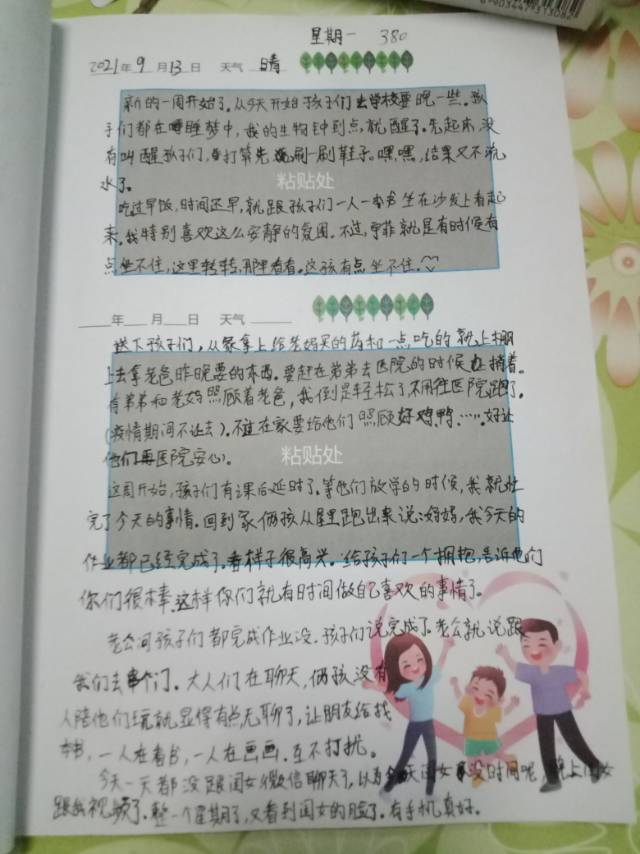 6903447313082
星期一 380
2021年9月13日 天气 晴
新的一周开始了。从今天开始孩子们去学校要晚一些。孩
子们都在睡梦中，我的生物钟到点就醒了。先起床，没
有叫醒孩子们，打算先刷一刷鞋子。嘿，嘿，结果又不流
水了。
粘贴处
吃过早饭，时间还早，就跟孩子们一人一本书坐在沙发上看起
来。我特别喜欢这么安静的氛围。不过，宁菲就是有时候有
点坐不住，这里转转，那里看看。这孩有点坐不住。
年 月 日 天气
送下孩子们，从家拿上给老妈买的药和一点吃的就上棚
上去拿老爸昨晚要的东西。要赶在弟弟去医院的时候捎着。
有弟弟和老妈照顾着老爸，我倒是轻松了不用往医院跑了。
(疫情期间不让去)。不过在家要给他们照顾好鸡，鸭……好让
他们再医院安心)。
粘贴处
这周开始，孩子们有课后延时了。等他们放学的时候，我就处
完了今天的事情。回到家俩孩从屋里跑出来说：妈妈，我今天的
作业都已经完成了。看样子很高兴。给孩子们一个拥抱，告诉他们
你们很棒，这样你们就有时间做自己喜欢的事情了。
老公问孩子们都完成作业没，孩子们说完成了。老公就说跟
我们去串个门。大人们在聊天，俩孩没有
人陪他们玩就显得有点无聊了，让朋友给找
本书，一人在看书，一人在画画。互不打扰。
今天一天都没跟闺女微信聊天了，以为今天闺女没时间呢，晚上闺女
跟我视频了。整一个星期了，又看到闺女的脸了。有手机真好。